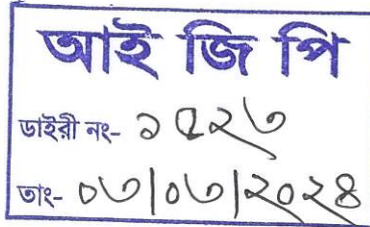 আই জি পি
ডাইরী নং- ১৫২৩
তাং- ০৩/০৩/২০২৪